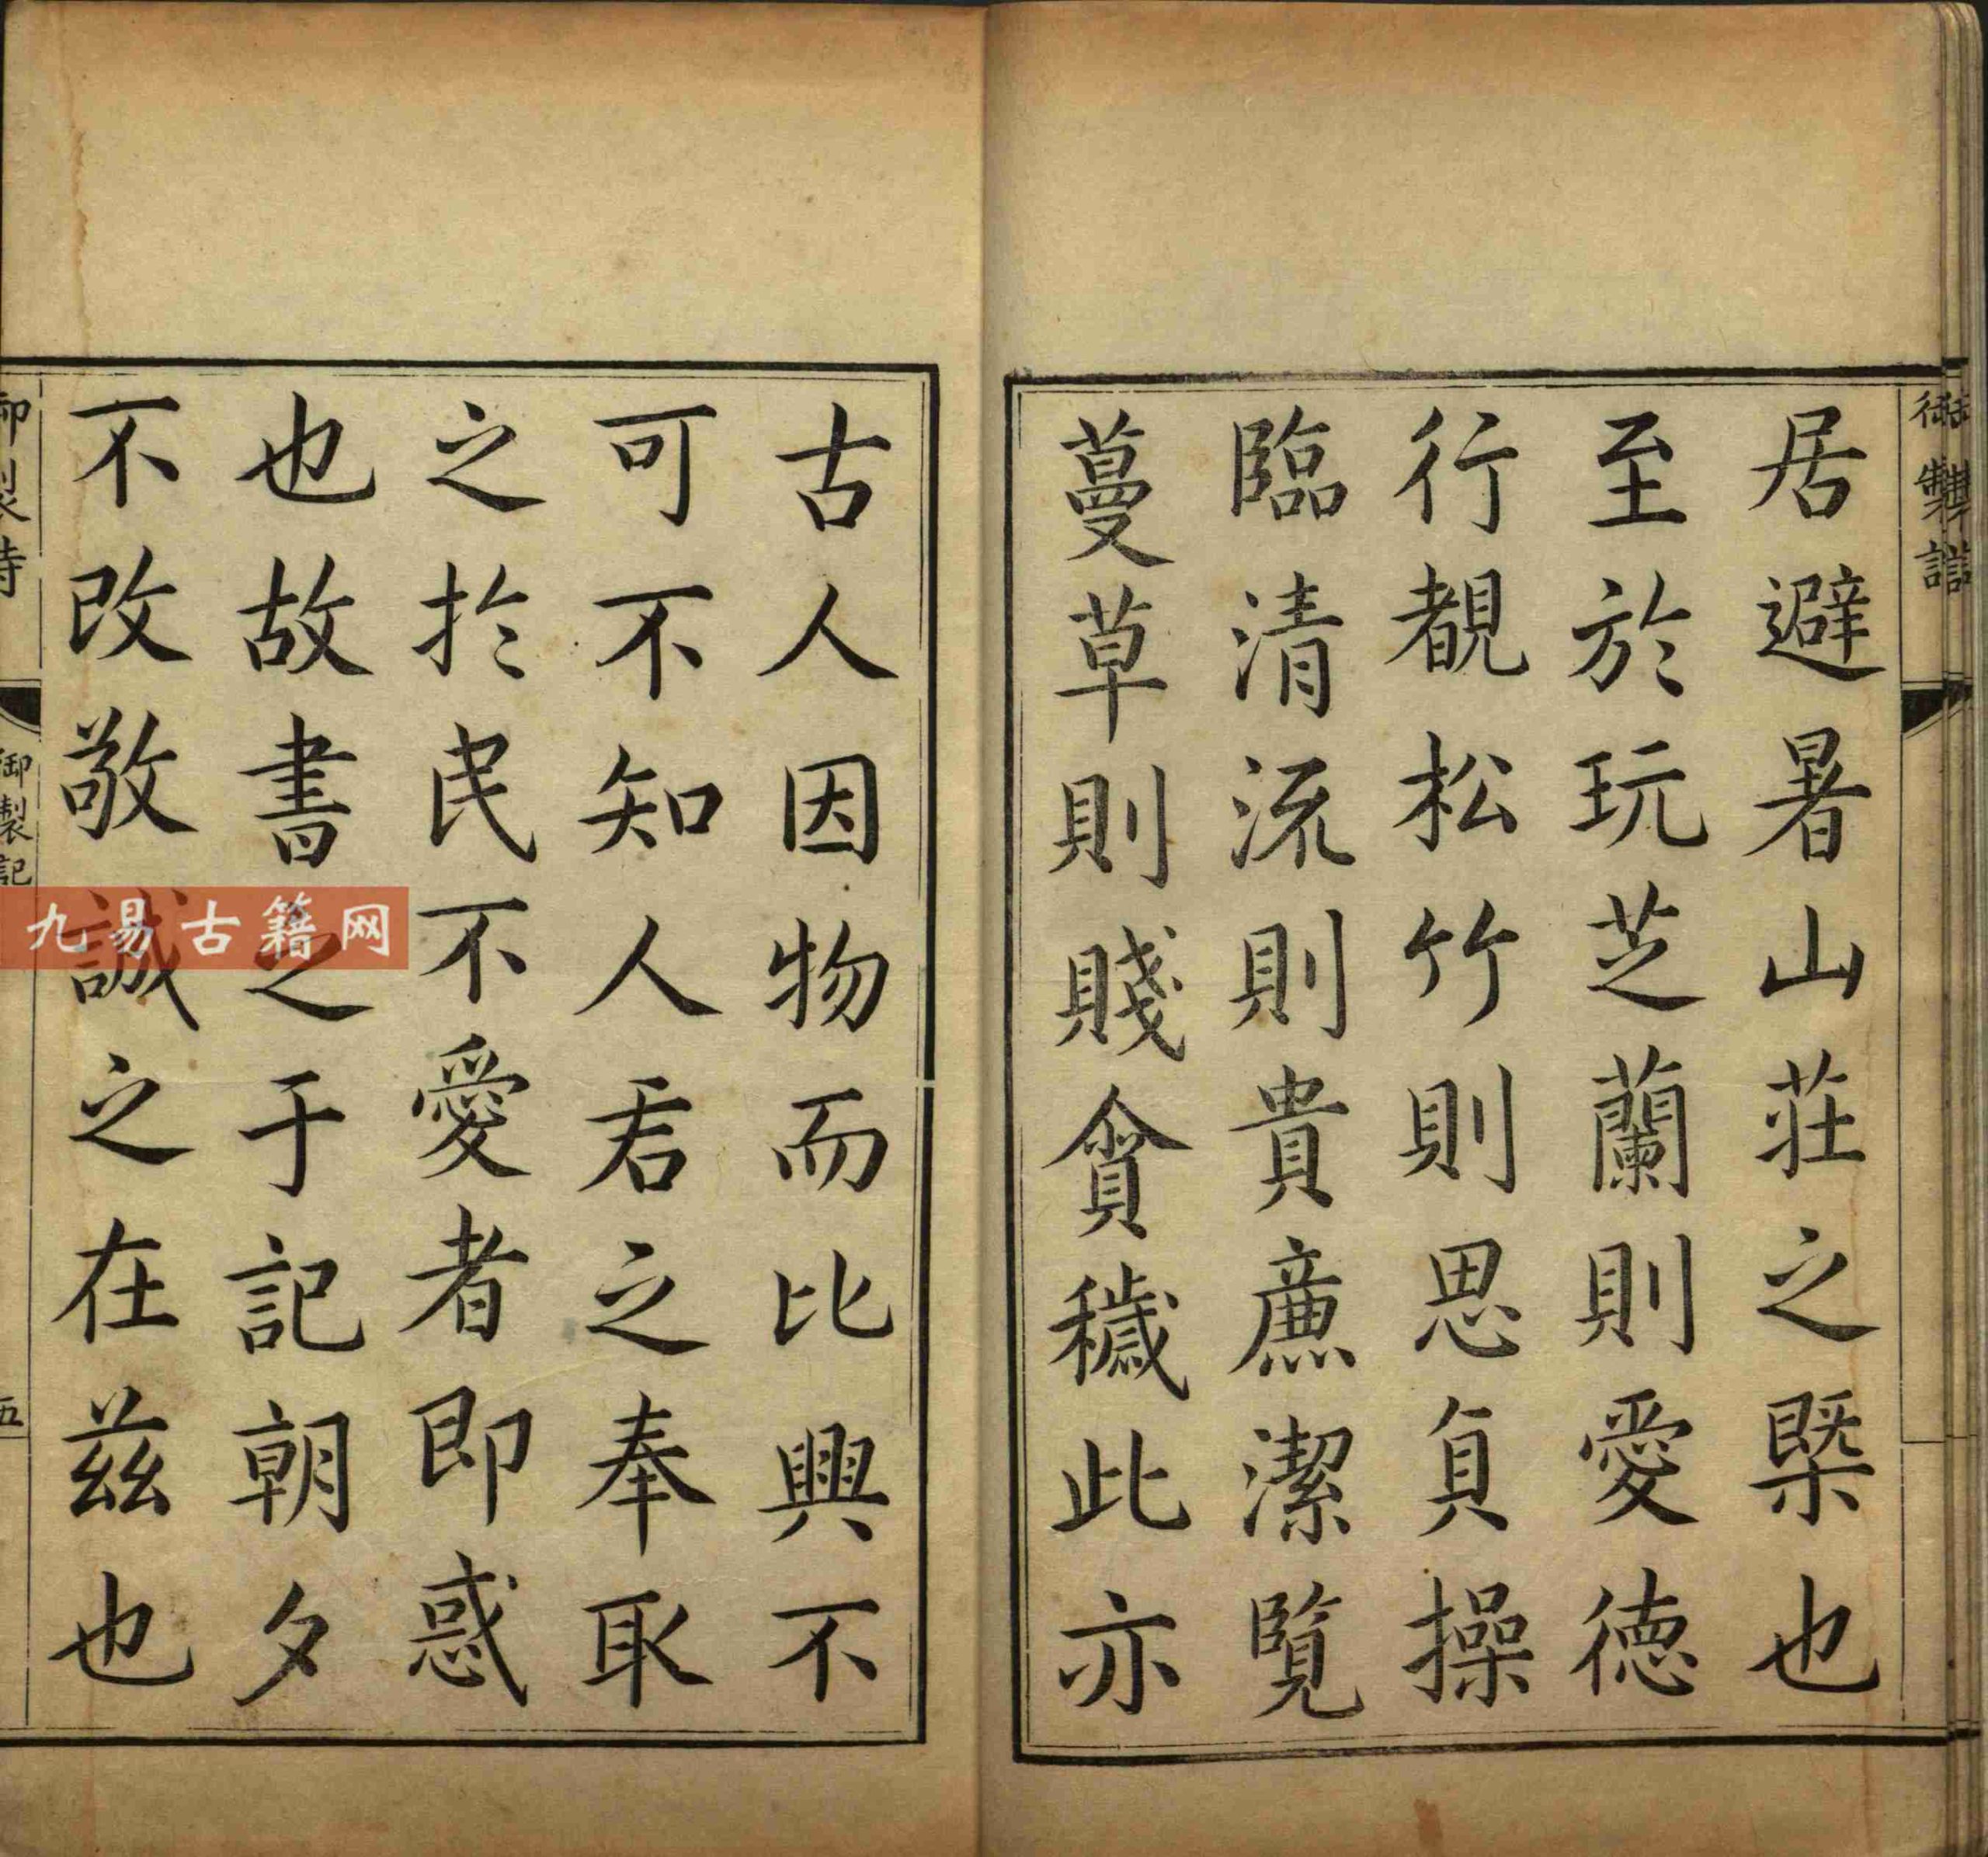 居避暑山莊之槩也
至於玩芝蘭則愛徳
行覩松竹則思貞操
臨清流則貴廉潔覧
蔓草則賤貪穢此亦
古人因物而比興不
可不知人君之奉取
之於民不愛者即惑
也故書之于記朝夕
不改敬誠之在茲也
御製記
五
九易古籍网